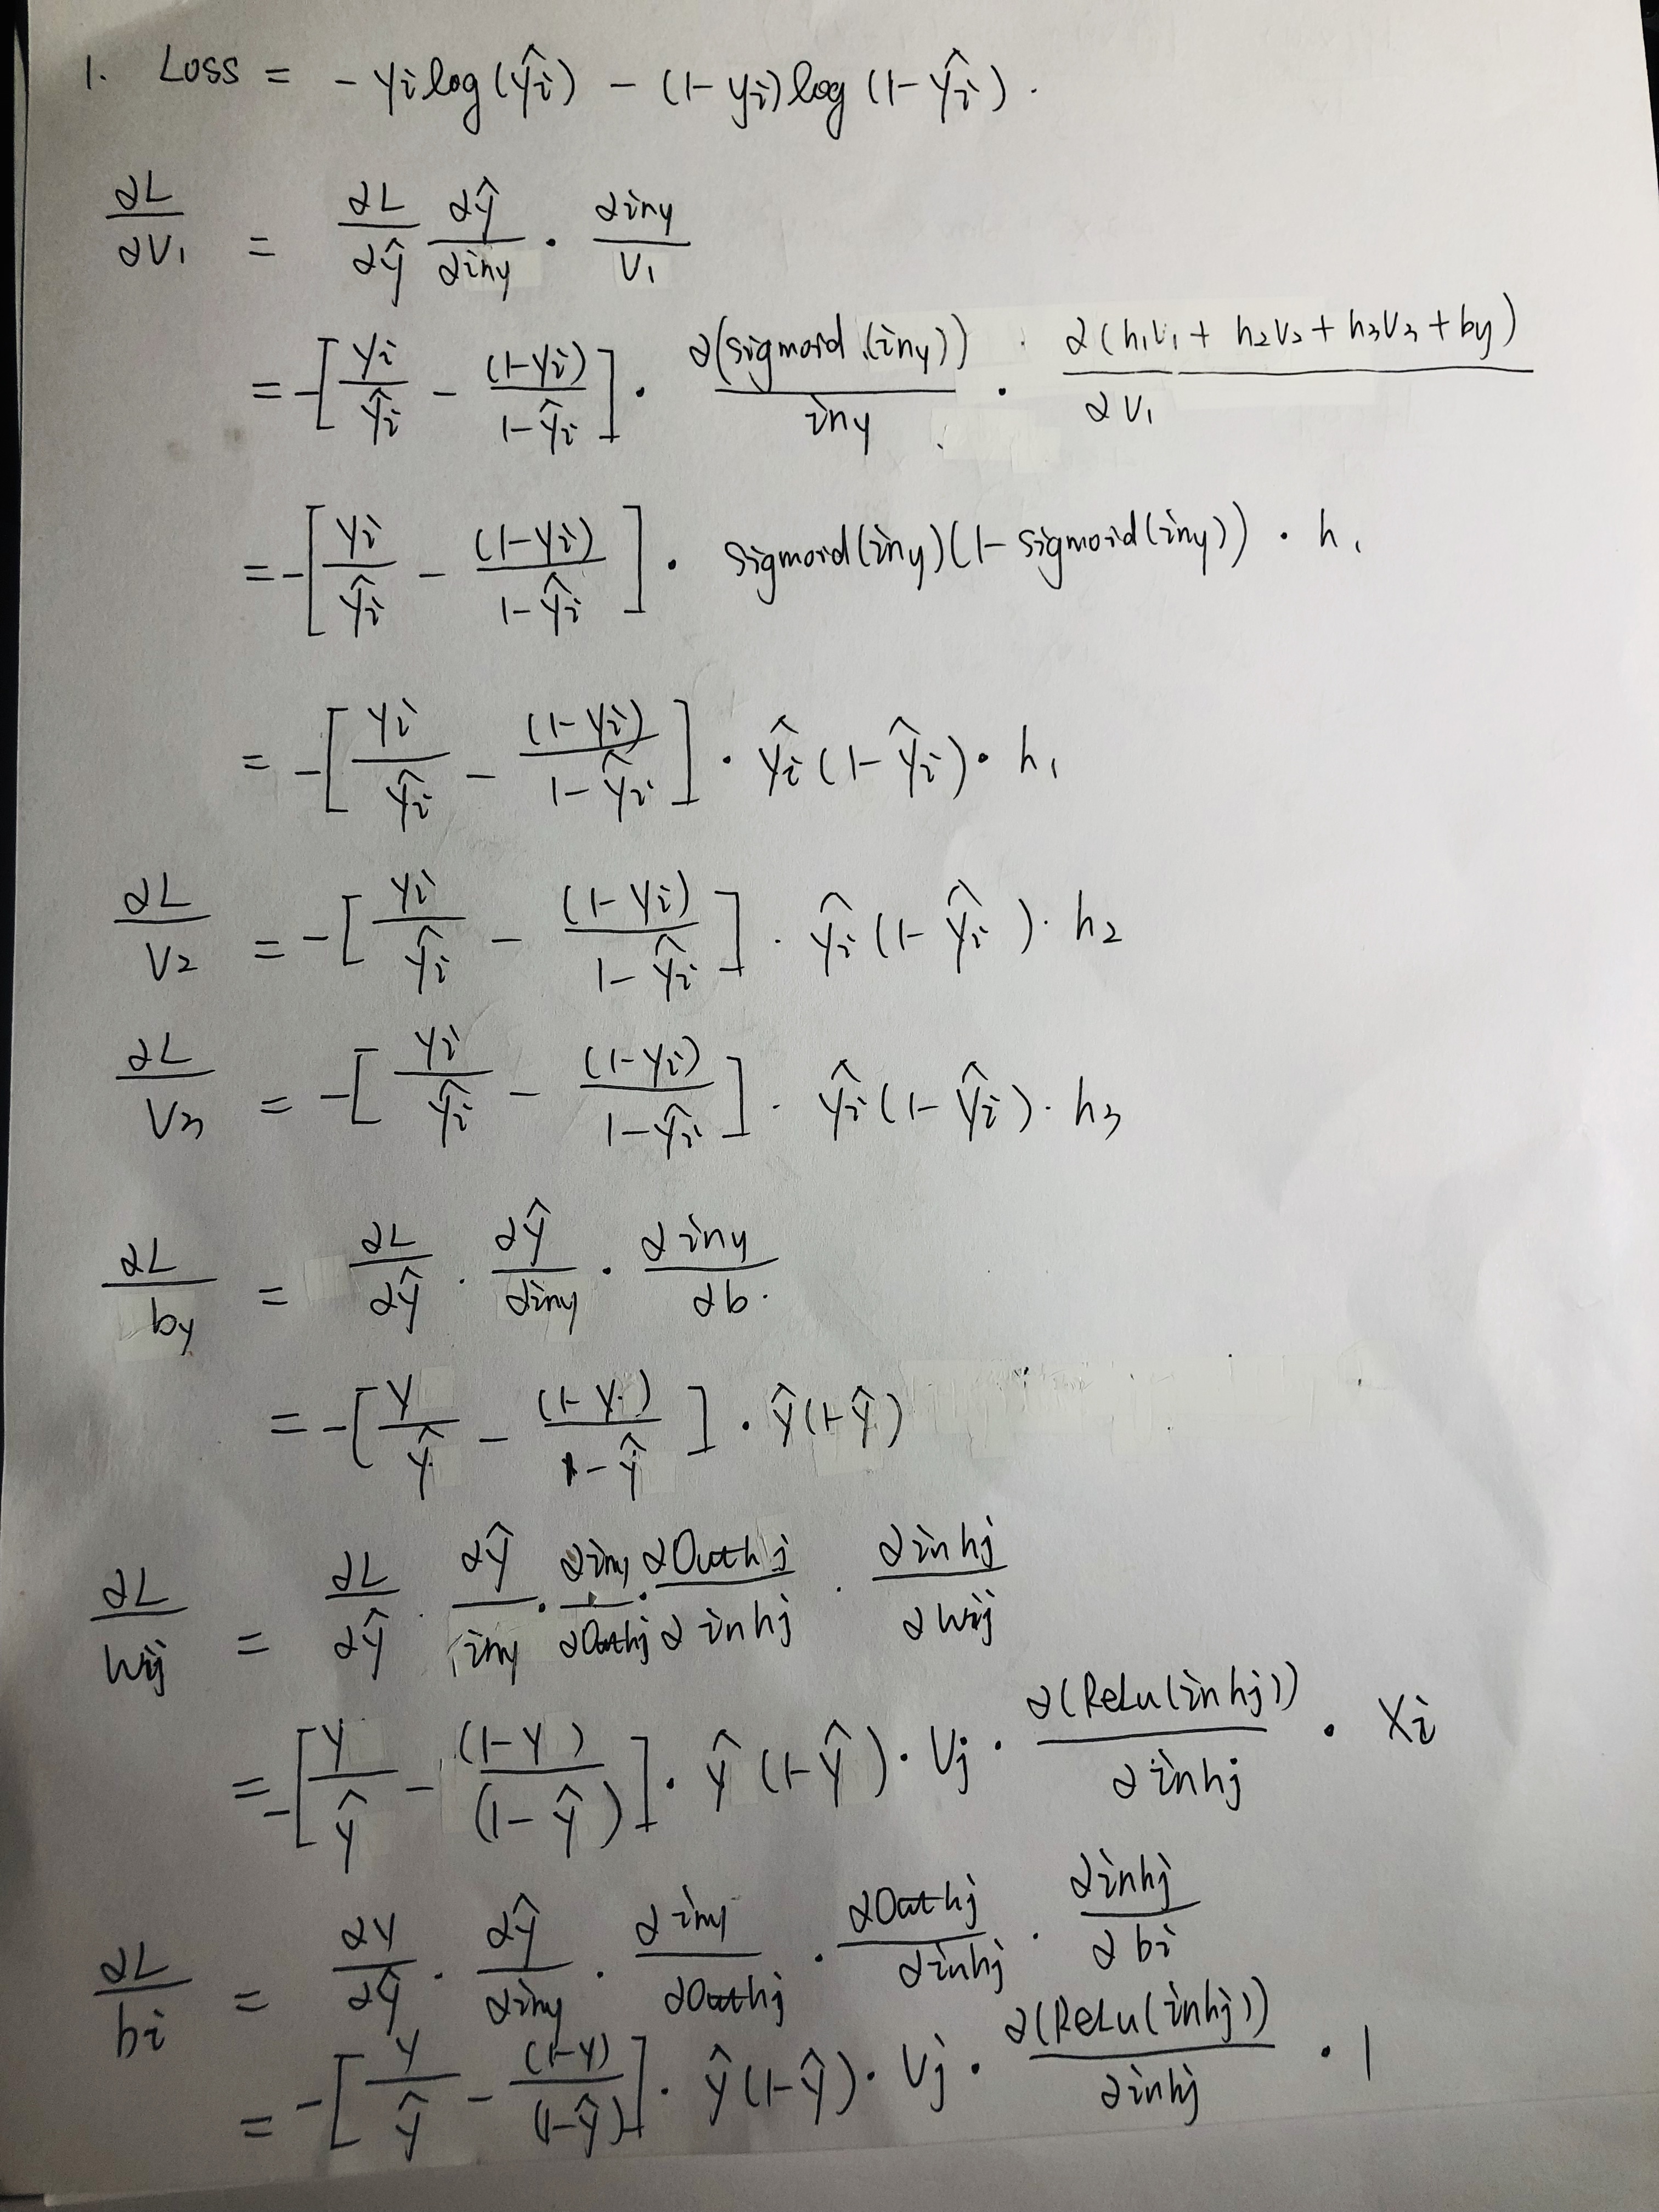 1. Loss = - yi log(ŷi) - (1- yi) log (1- ŷi).
∂L/∂V1 = ∂L/∂ŷ ∂ŷ/∂iny · ∂iny/V1
= -[yi/ŷi - (1-yi)/1-ŷi] · ∂(sigmoid (iny))/iny · ∂(h1V1 + h2V2 + h3V3 + by)/∂V1
= -[yi/ŷi - (1-yi)/1-ŷi] · sigmoid(iny)(1- sigmoid(iny)) · h1
= -[yi/ŷi - (1-yi)/1-ŷi] · ŷi (1- ŷi) · h1
∂L/V2 = -[yi/ŷi - (1-yi)/1-ŷi] · ŷi (1- ŷi) · h2
∂L/V3 = -[yi/ŷi - (1-yi)/1-ŷi] · ŷi (1- ŷi) · h3
∂L/by = ∂L/∂ŷ · ∂ŷ/∂iny · ∂iny/∂b.
= -[y/ŷ - (1-y)/1-ŷ] · ŷ(1-ŷ)
∂L/Wij = ∂L/∂ŷ · ∂ŷ/iny · ∂iny/∂Outhj · ∂Outhj/∂inhj · ∂inhj/∂Wij
= -[y/ŷ - (1-y)/(1-ŷ)] · ŷ (1-ŷ) · Vj · ∂(ReLu(inhj))/∂inhj · Xi
∂L/bi = ∂y/∂ŷ · ∂ŷ/∂iny · ∂iny/∂Outhj · ∂Outhj/∂inhj · ∂inhj/∂bi
= -[y/ŷ - (1-y)/(1-ŷ)] · ŷ(1-ŷ) · Vj · ∂(ReLu(inhj))/∂inhj · 1